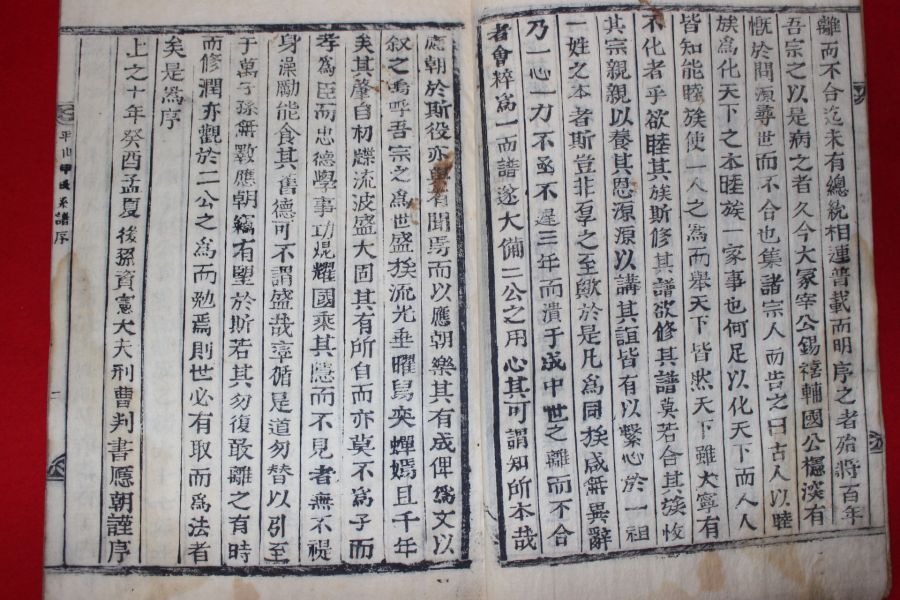 離而不合迄未有總統相連普載而明序之者殆將百年
吾宗之以是病之者久今大冢宰公錫禧輔國公櫶淡有
慨於問源尋世而不合也集諸宗人而告之曰古人以睦
族爲化天下之本睦族一家事也何足以化天下而人人
皆知能睦族使一人之爲而舉天下皆然天下雖大寧有
不化者乎欲睦其族斯修其譜欲修其譜莫若合其族收
其宗親親以養其恩源源以講其誼皆有以繫心於一祖
一姓之本者斯豈非厚之至歟於是凡爲同族咸無異辭
乃一心一力不亟不遲三年而潰于成中世之離而不合
者會粹爲一而譜遂大備二公之用心其可謂知所本哉
應朝於斯役亦與有聞焉而以應朝樂其有成俾爲文以
叙之嗚呼吾宗之爲世盛族流光垂曜舃奕蟬嫣且千年
矣其肇自初牒流波盛大固其有所自而亦莫不爲子而
孝爲臣而忠德學事功焜耀國乘其隱而不見者無不禔
身澡勵能食其舊德可不謂盛哉率循是道勿替以引至
于萬子孫無斁應朝竊有望於斯若其勿復敢離之有時
而修潤亦觀於二公之爲而勉焉則世必有取而爲法者
矣是爲序
上之十年癸酉孟夏後孫資憲大夫刑曹判書應朝謹序
平山申氏系譜序
一